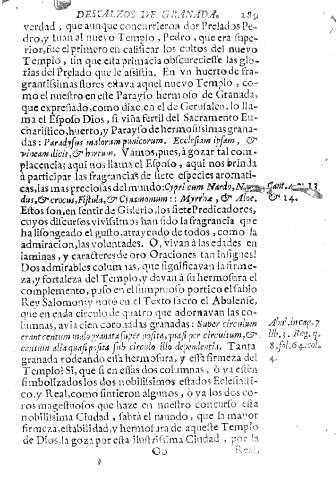 DESCALZOS DE GRANADA. 289
verdad, que aunque concurrieron dos Prelados Pe-
dro, y Iuan al nuevo Templo, Pedro, que era supe-
rior, fue el primero en calificar los cultos del nuevo
Templo, sin que esta primacia obscureciesse las glo-
rias del Prelado que le assistia. En vn huerto de fra-
grantissimas flores estava aquel nuevo Templo, co-
mo el nuestro en este Parayso hermoso de Granada,
que expressado, como dixe, en el de Gerusalen, lo lla-
ma el Esposo Dios, si viña fertil del Sacramento Eu-
charistico, huerto, y Parayso de hermosissimas grana-
das: Paradysus malorum punicorum. Ecclesiam ipsam, &
vineam dicit, & hortum. Vamos, pues, à gozar tal com-
placencia; aqui nos llama el Esposo, aqui nos brinda
à participar las fragrancias de siete especies aromati-
cas, las mas preciosas del mundo: Cypri cum Nardo, Nar-
dus, & crocus, Fistula, & Cinamomum: Myrrha, & Aloe.
Cant. 4. 13
& 14.
Estos son, en sentir de Gislerio, los siete Predicadores,
cuyos discursos vivissimos son los han dado la fragrancia que
ha lisongeado el gusto, atrayendo de todos, como la
admiracion, las voluntades. O, vivan à las edades en
laminas, y caracteres de oro Oraciones tan insignes!
Dos admirables columnas, que significavan la firme-
za, y fortaleza del Templo, y davan à su hermosura el
complemento, puso en el sumptuoso portico el sabio
Rey Salomon; y notò en el Texto sacro el Abulense,
que en cada circulo de quatro que adornavan las co-
lumnas, avia cien coronadas granadas: Super circulum
erant centum malogranata super posita, quasi per circuitum, &
centum alia quasi posita sub circulo illo dependentia. Tanta
Abul. in cap. 7
lib. 3. Reg. q.
8. fol. 64. col.
4.
granada rodeando esta hermosura, y esta firmeza del
Templo? Si, que si en essas dos columnas, ò ya estèn
simbolizados los dos nobilissimos estados Eclesiasti-
co, y Real, como sintieron algunos, ò ya los dos co-
ros magestuosos que haze en nuestro concurso esta
nobilissima Ciudad, sabrà el mundo, que la mayor
firmeza, estabilidad, y hermosura de aqueste Templo
de Dios, la goza por esta ilustrissima Ciudad, por la
Oo Real,